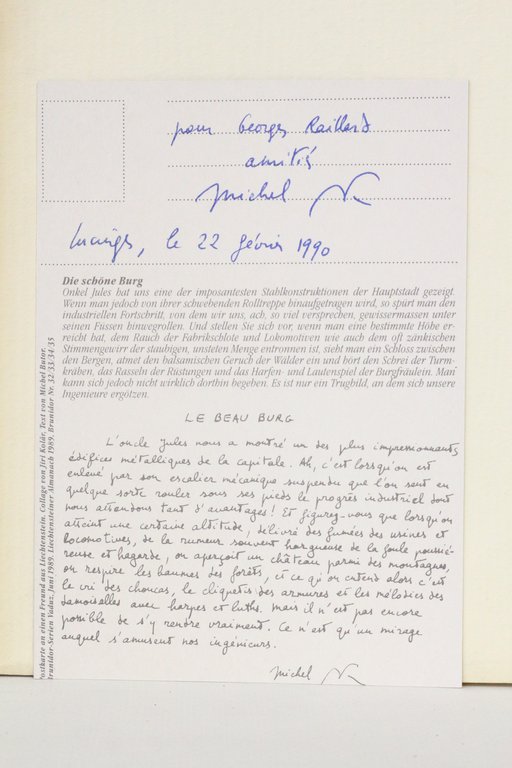 pour Georges Raillard
amitiés
Michel
Lucinges, le 22 février 1990
Die schöne Burg
Onkel Jules hat uns eine der imposantesten Stahlkonstruktionen der Hauptstadt gezeigt.
Wenn man jedoch von ihrer schwebenden Rolltreppe hinaufgetragen wird, so spürt man den
industriellen Fortschritt, von dem wir uns, ach, so viel versprechen, gewissermassen unter
seinen Füssen hinwegrollen. Und stellen Sie sich vor, wenn man eine bestimmte Höhe er-
reicht hat, dem Rauch der Fabrikschlote und Lokomotiven wie auch dem oft zänkischen
Stimmengewirr der staubigen, unsteten Menge entronnen ist, sieht man ein Schloss zwischen
den Bergen, atmet den balsamischen Geruch der Wälder ein und hört den Schrei der Turm-
krähen, das Rasseln der Rüstungen und das Harfen- und Lautenspiel der Burgfräulein. Man
kann sich jedoch nicht wirklich dorthin begeben. Es ist nur ein Trugbild, an dem sich unsere
Ingenieure ergötzen.
LE BEAU BURG
L'oncle Jules nous a montré un des plus impressionnants
édifices métalliques de la capitale. Ah, c'est lorsqu'on est
enlevé par son escalier mécanique suspendu que l'on sent en
quelque sorte rouler sous ses pieds le progrès industriel dont
nous attendons tant d'avantages! Et figurez-vous que lorsqu'on
atteint une certaine altitude, délivré des fumées des usines et
locomotives, de la rumeur souvent hargneuse de la foule poussié-
reuse et hagarde, on aperçoit un château parmi des montagnes,
on respire les baumes des forêts, et ce qu'on entend alors c'est
le cri des choucas, le cliquetis des armures et les mélodies des
damoiselles avec harpes et luths. Mais il n'est pas encore
possible de s'y rendre vraiment. Ce n'est qu'un mirage
auquel s'amusent nos ingénieurs.
Michel
Postkarte an einen Freund aus Liechtenstein. Collage von Jiri Kolár, Text von Michel Butor.
Brunidor-Serien Vaduz, Juni 1989. Liechtensteiner Almanach 1989. Brunidor Nr. 32/33/34/35